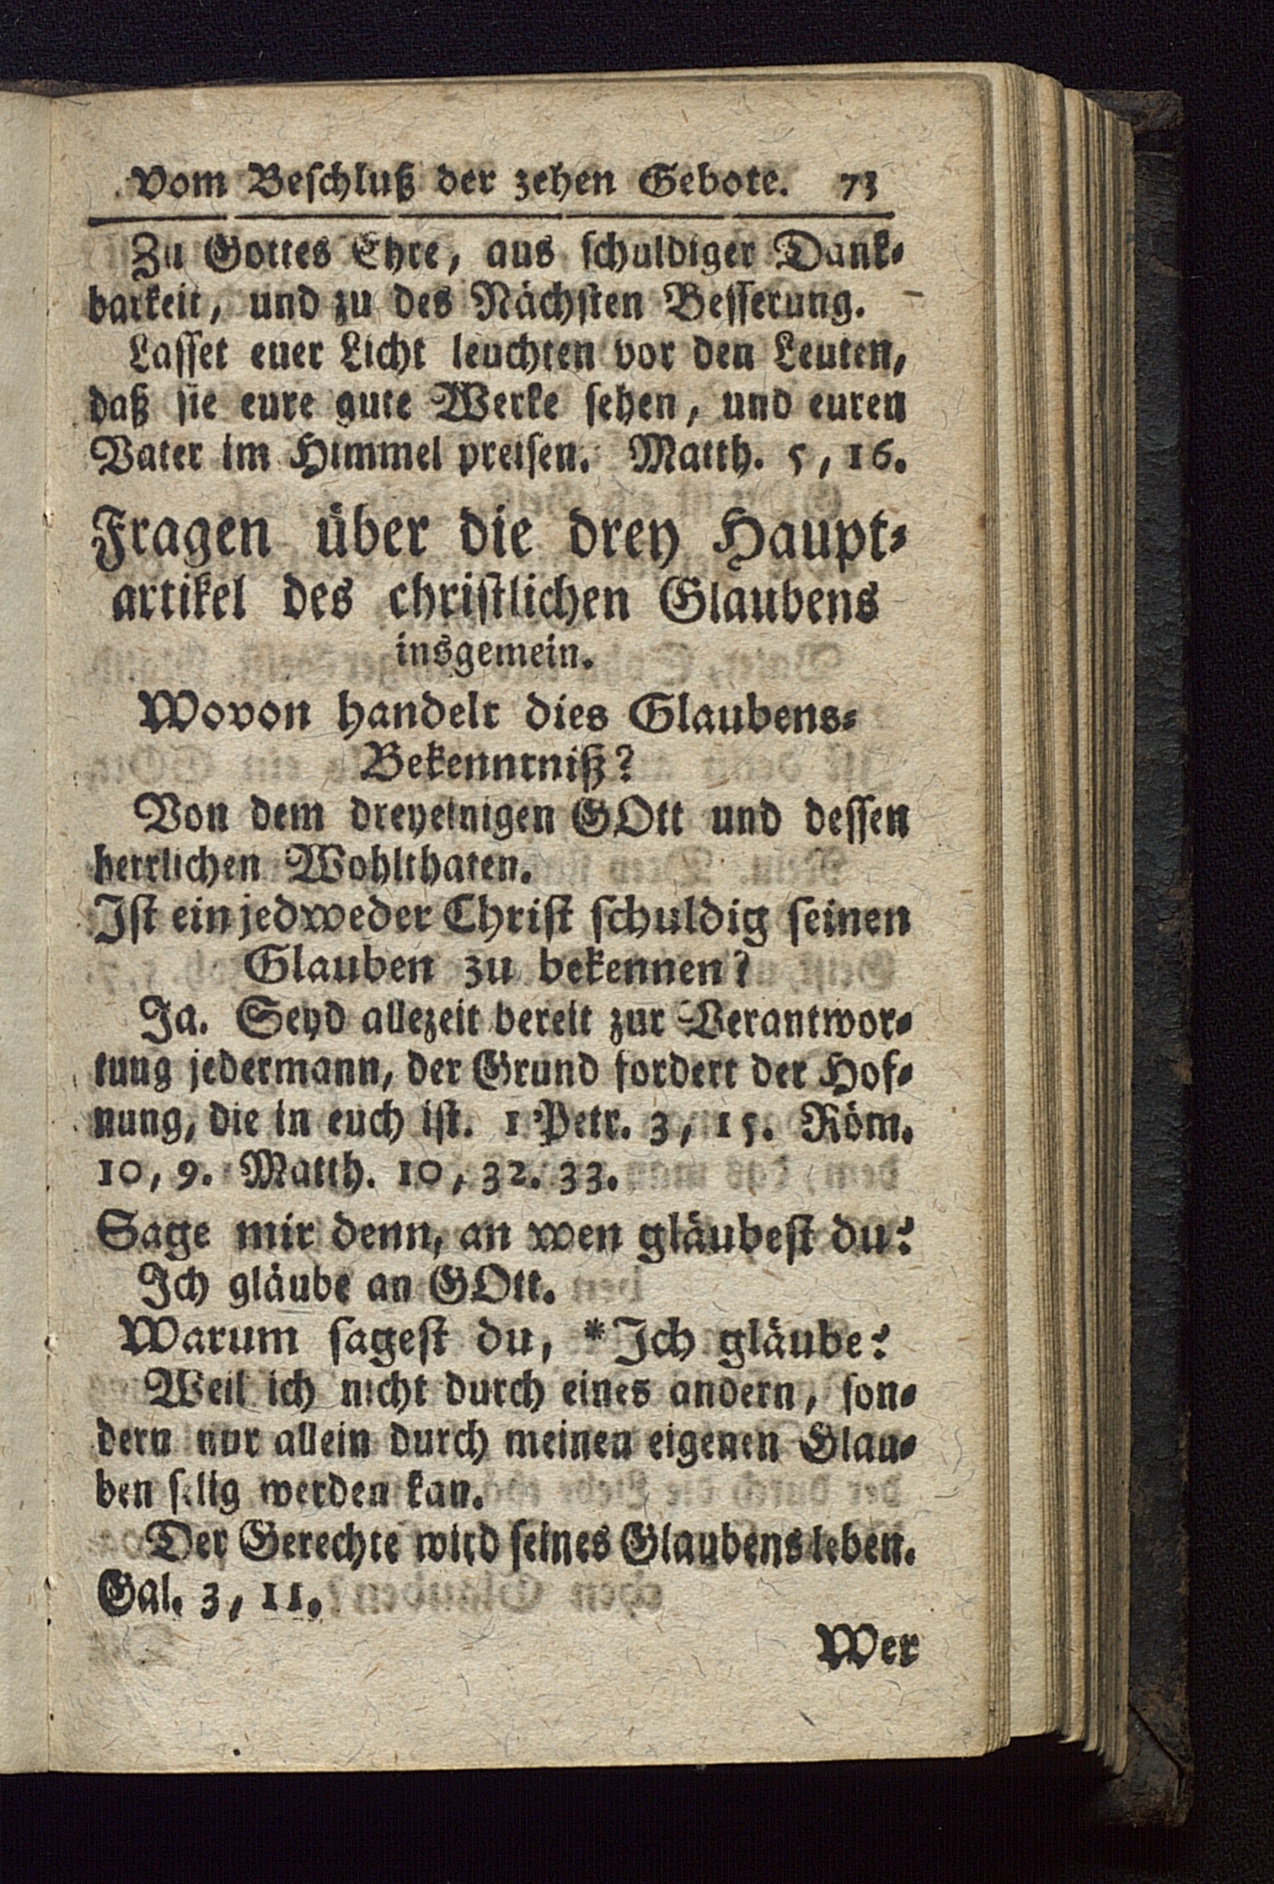 Vom Beschluß der zehen Gebote. 73
Zu Gottes Ehre, aus schuldiger Dank-
barkeit, und zu des Nächsten Besserung.
Lasset euer Licht leuchten vor den Leuten,
daß sie eure gute Werke sehen, und euren
Vater im Himmel preisen. Matth. 5, 16.
Fragen über die drey Haupt-
artikel des christlichen Glaubens
insgemein.
Wovon handelt dies Glaubens-
Bekenntniß?
Von dem dreyeinigen GOtt und dessen
herrlichen Wohlthaten.
Ist ein jedweder Christ schuldig seinen
Glauben zu bekennen?
Ja. Seyd allezeit bereit zur Verantwor-
tung jedermann, der Grund fordert der Hof-
nung, die in euch ist. 1 Petr. 3, 15. Röm.
10, 9. Matth. 10, 32. 33.
Sage mir denn, an wen gläubest du?
Ich gläube an GOtt.
Warum sagest du, *Ich gläube?
Weil ich nicht durch eines andern, son-
dern nur allein durch meinen eigenen Glau-
ben selig werden kan.
Der Gerechte wird seines Glaubens leben.
Gal. 3, 11.
Wer